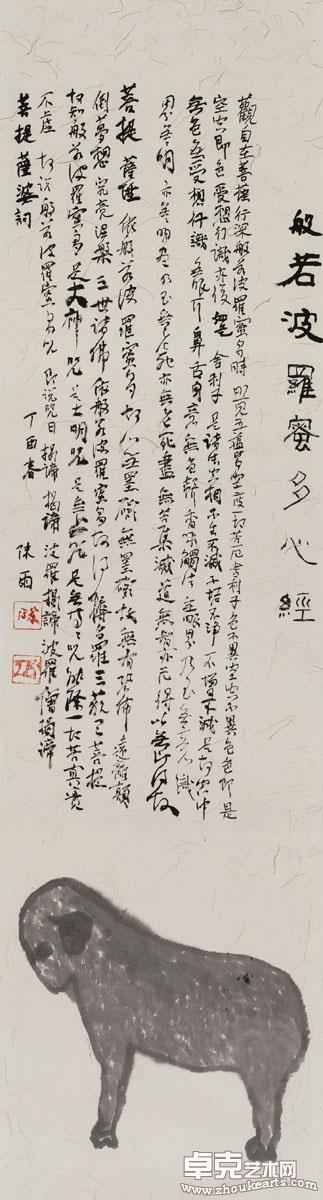 般若波羅蜜多心經
觀自在菩薩行深般若波羅蜜多時照見五蘊皆空度一切苦厄舍利子色不異空空不異色色即是
空空即色受想行識亦復如是舍利子是諸法空相不生不滅不垢不淨不增不減是故空中
無色無受想行識無眼耳鼻舌身意無色聲香味觸法無眼界乃至無意識
界無無明亦無無明盡乃至無老死亦無老死盡無苦集滅道無智亦無得以無所得故
菩提薩埵依般若波羅蜜多故心無罣礙無罣礙故無有恐怖遠離顛
倒夢想究竟涅槃三世諸佛依般若波羅蜜多故得阿耨多羅三藐三菩提
故知般若波羅蜜多是大神咒是大明咒是無上咒是無等等咒能除一切苦真實
不虛故說般若波羅蜜多咒即說咒曰揭諦揭諦波羅揭諦波羅僧揭諦
菩提薩婆訶
丁酉春
陳雨
卓克艺术网
www.zhoukearts.com